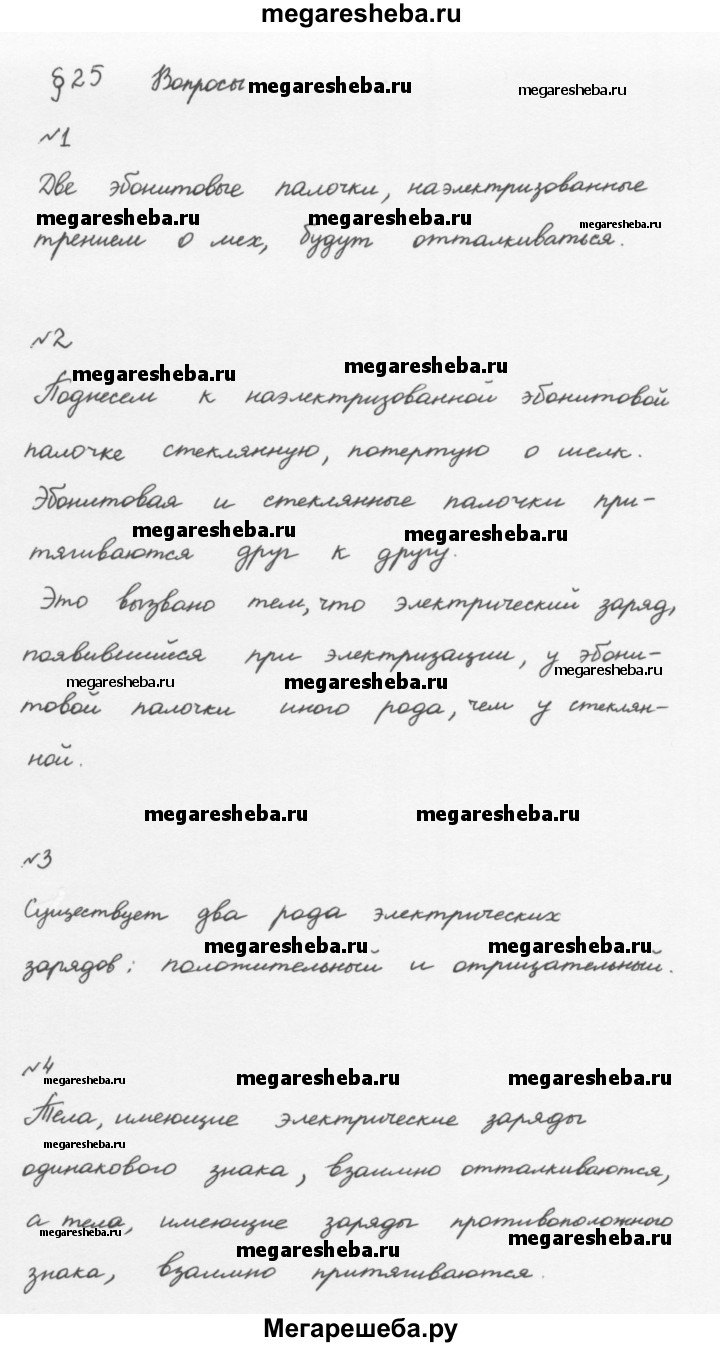 megaresheba.ru
§25 Вопросы megaresheba.ru megaresheba.ru
№1
Две эбонитовые палочки, наэлектризованные
megaresheba.ru megaresheba.ru megaresheba.ru
трением о мех, будут отталкиваться.
№2
megaresheba.ru megaresheba.ru
Поднесем к наэлектризованной эбонитовой
палочке стеклянную, потертую о шелк.
Эбонитовая и стеклянные палочки при-
megaresheba.ru megaresheba.ru
тягиваются друг к другу.
Это вызвано тем, что электрический заряд,
появившийся при электризации, у эбони-
megaresheba.ru megaresheba.ru megaresheba.ru
товой палочки иного рода, чем у стеклян-
ной.
megaresheba.ru megaresheba.ru
№3
Существует два рода электрических
megaresheba.ru megaresheba.ru
зарядов: положительный и отрицательный.
№4
megaresheba.ru megaresheba.ru megaresheba.ru
Тела, имеющие электрические заряды
megaresheba.ru
одинакового знака, взаимно отталкиваются,
а тела, имеющие заряды противоположного
megaresheba.ru megaresheba.ru megaresheba.ru
знака, взаимно притягиваются.
Мегарешеба.ру